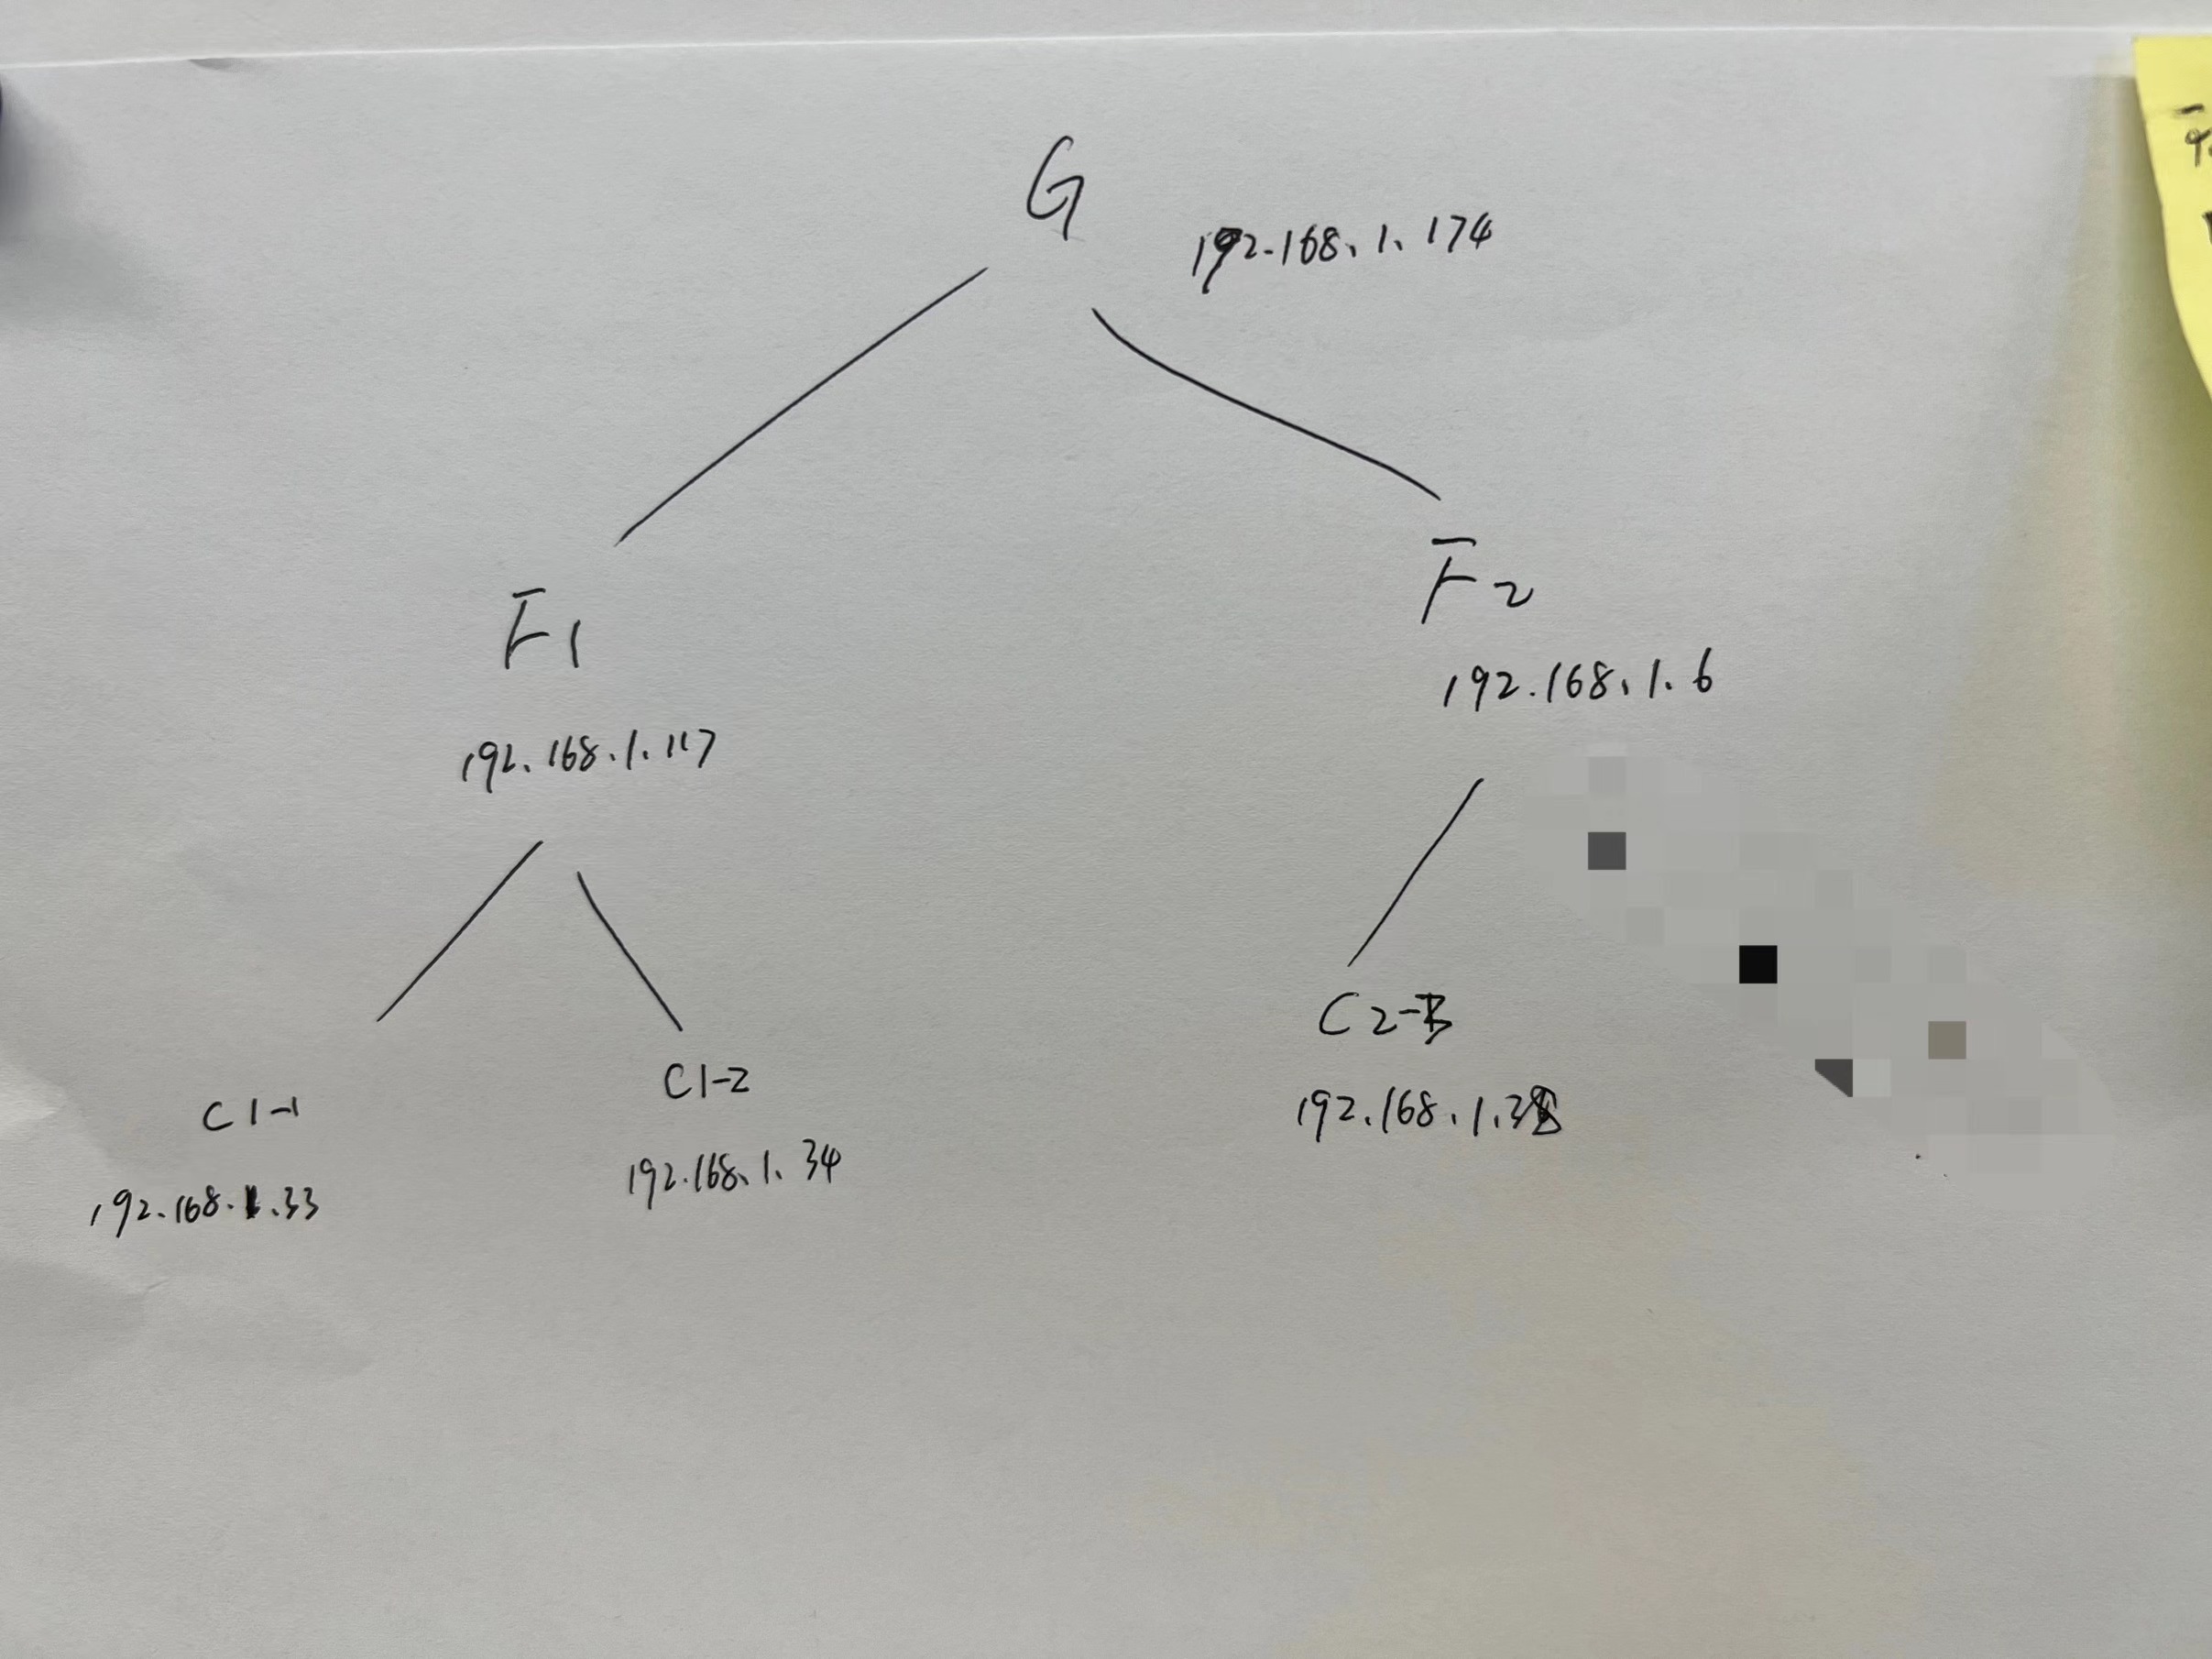 G
192.168.1.174
F1
192.168.1.117
F2
192.168.1.6
C1-1
192.168.1.33
C1-2
192.168.1.34
C2-3